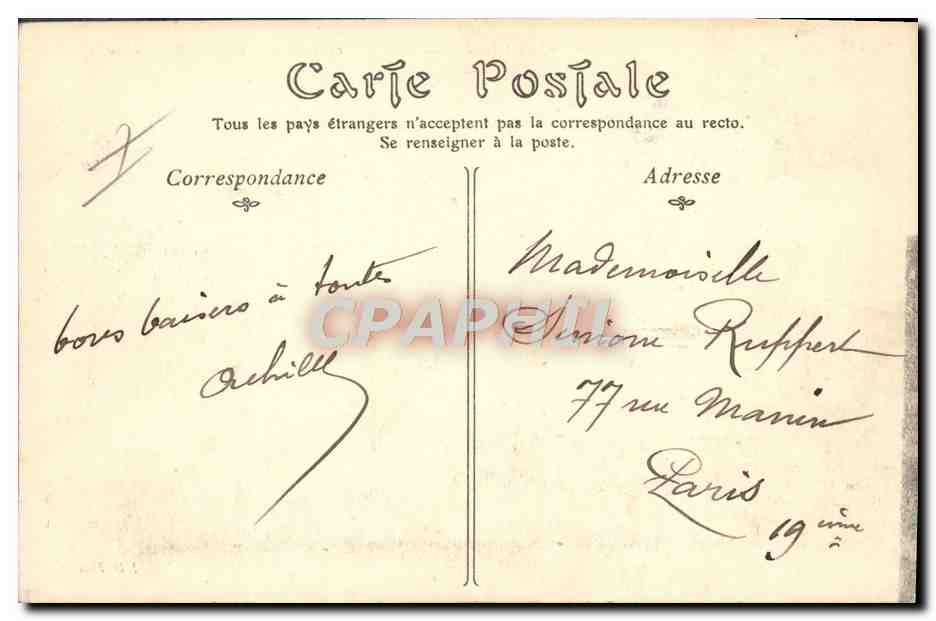 Carte Postale
Tous les pays étrangers n'acceptent pas la correspondance au recto.
Se renseigner à la poste.
Correspondance
Adresse
bons baisers à toutes
Achille
Mademoiselle
Simone Ruppert
77 rue Manin
Paris
19 ième
CPAPHIL